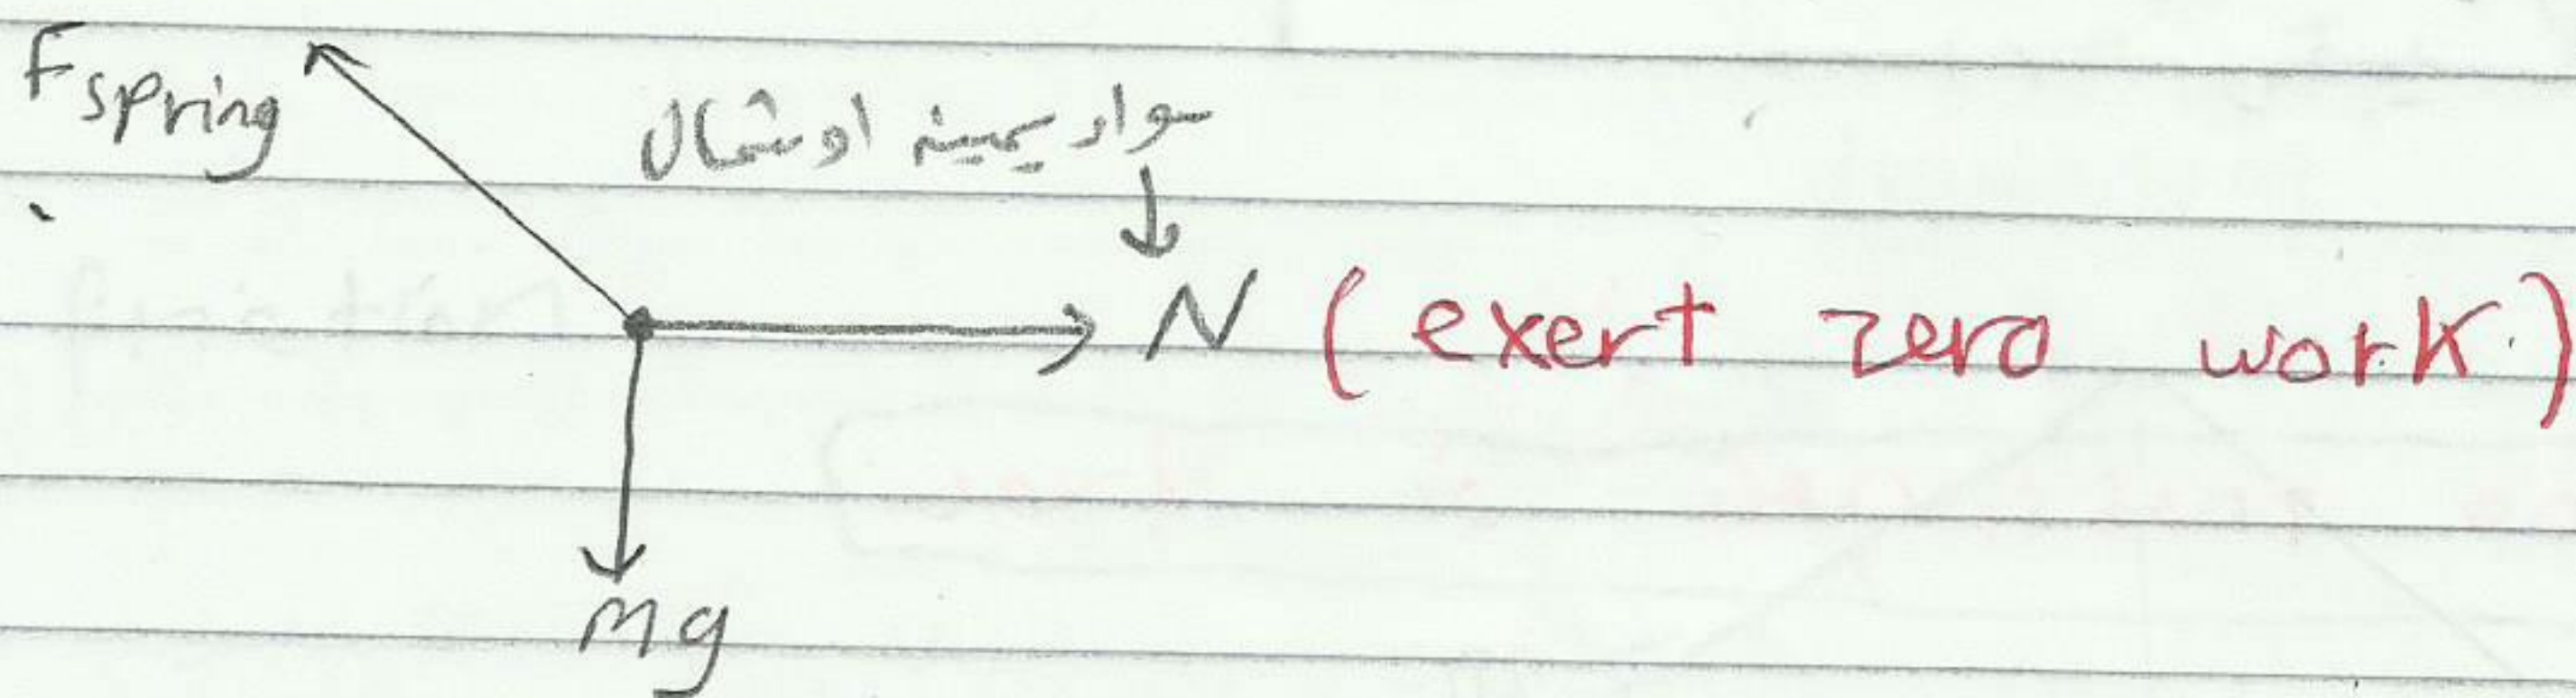 Fspring
سواء يمينه او شمال
N (exert zero work.)
mg